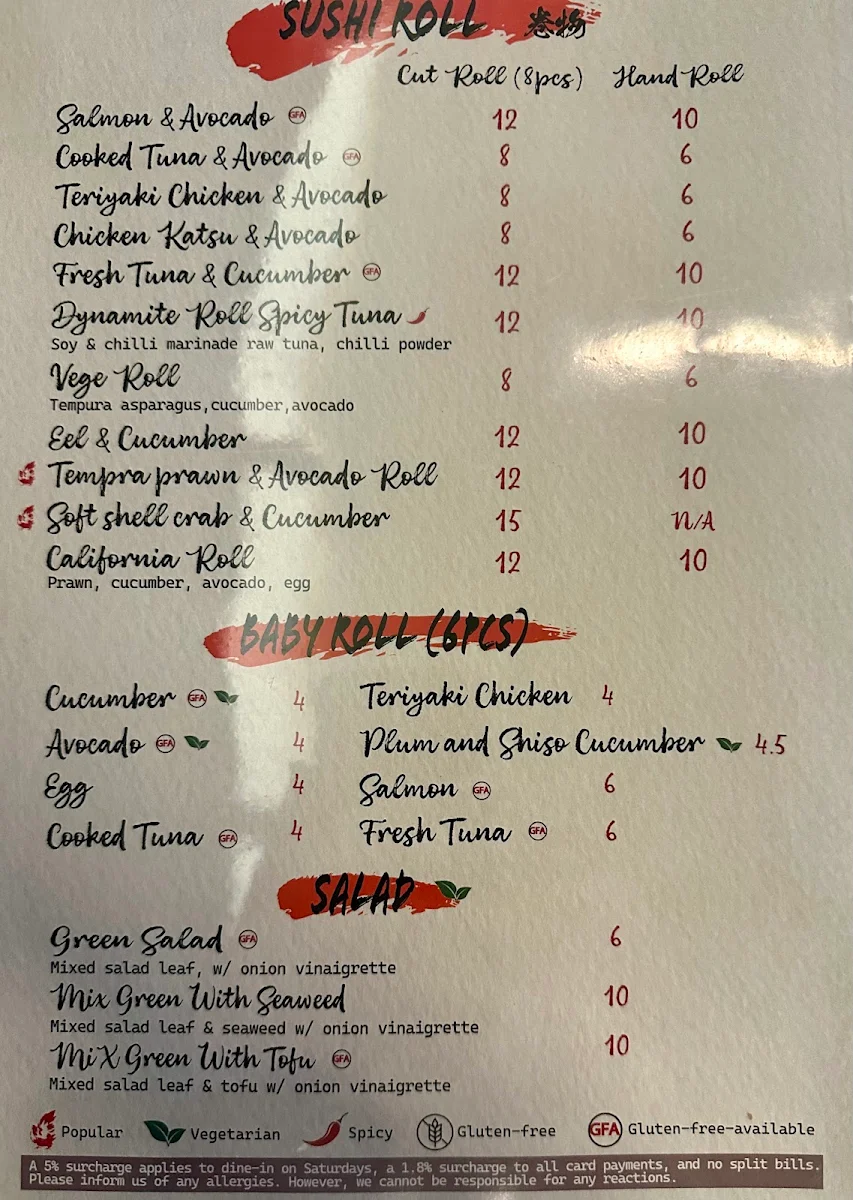 SUSHI ROLL 巻物
Cut Roll (8pcs) Hand Roll
Salmon & Avocado GFA 12 10
Cooked Tuna & Avocado GFA 8 6
Teriyaki Chicken & Avocado 8 6
Chicken Katsu & Avocado 8 6
Fresh Tuna & Cucumber GFA 12 10
Dynamite Roll Spicy Tuna 12 10
Soy & chilli marinade raw tuna, chilli powder
Vege Roll 8 6
Tempura asparagus,cucumber,avocado
Eel & Cucumber 12 10
Tempra prawn & Avocado Roll 12 10
Soft shell crab & Cucumber 15 N/A
California Roll 12 10
Prawn, cucumber, avocado, egg
BABY ROLL (6PCS)
Cucumber GFA 4 Teriyaki Chicken 4
Avocado GFA 4 Plum and Shiso Cucumber 4.5
Egg 4 Salmon GFA 6
Cooked Tuna GFA 4 Fresh Tuna GFA 6
SALAD
Green Salad GFA 6
Mixed salad leaf, w/ onion vinaigrette
Mix Green With Seaweed 10
Mixed salad leaf & seaweed w/ onion vinaigrette
MiX Green With Tofu GFA 10
Mixed salad leaf & tofu w/ onion vinaigrette
Popular Vegetarian Spicy Gluten-free GFA Gluten-free-available
A 5% surcharge applies to dine-in on Saturdays, a 1.8% surcharge to all card payments, and no split bills.
Please inform us of any allergies. However, we cannot be responsible for any reactions.